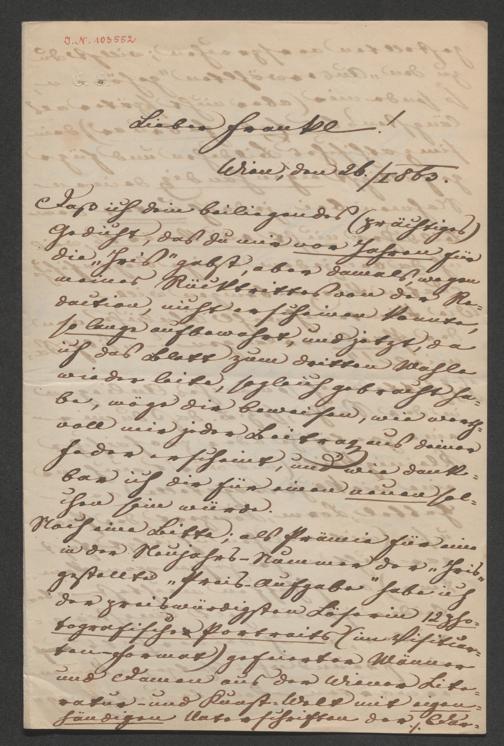 J. N. 103552
Lieber Frankl!
Wien, den 26./I 1863.
Daß ich dein beiliegendes (prächtiges)
Gedicht, das du mir vor Jahren für
die „Iris" gabst, aber damals, wegen
meines Rücktrittes von der Re-
daction, nicht erscheinen konnte,
so lange aufbewahrt, und jetzt, da
ich das Blatt zum dritten Mahle
wieder leite, sogleich gebracht ha-
be, möge dir beweisen, wie werth-
voll mir jeder Beitrag aus deiner
Feder erscheint, und wie dank-
bar ich dir für einen neuen sol-
chen sein würde.
Noch eine Bitte; als Prämie für eine
in der Neujahrs-Nummer der „Iris"
gestellte „Preis-Aufgabe" habe ich
der preiswürdigsten Löserin 12 Pho-
tografische Portraits (im Visitkar-
ten-Format) gefeierter Männer
und Damen aus der Wiener Lite-
ratur- und Kunst-Welt mit eigen-
händigen Unterschriften der